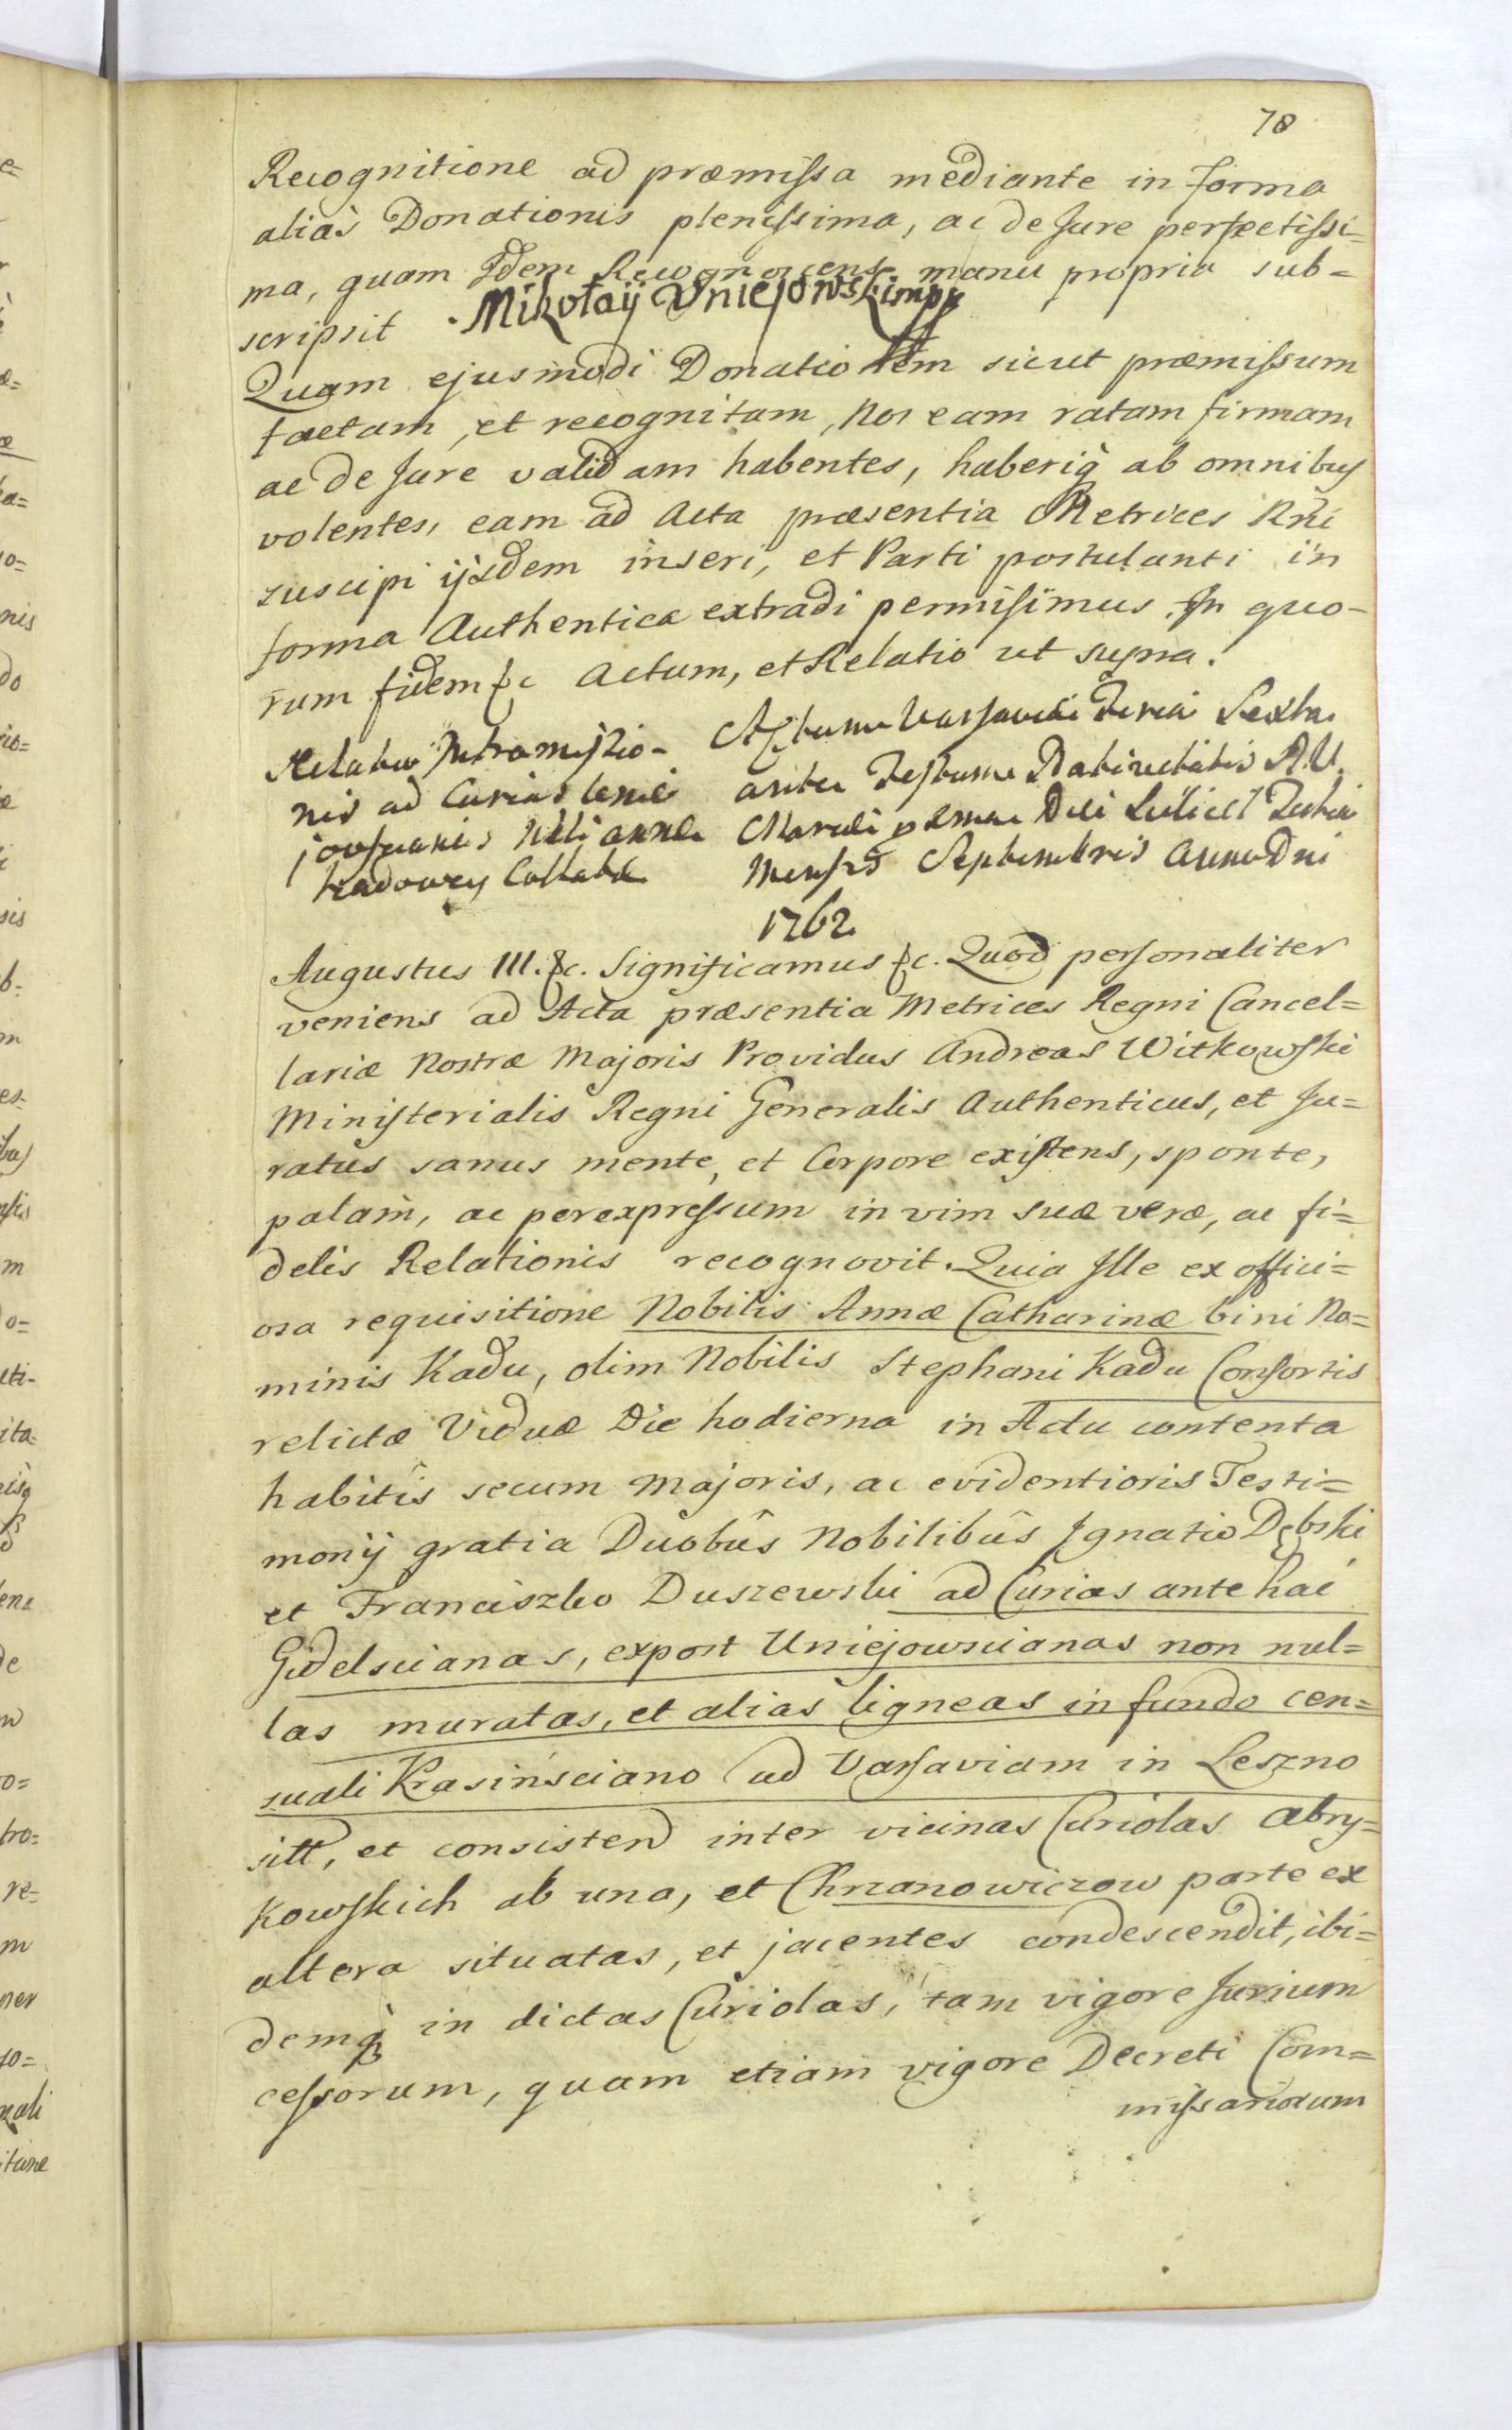 78
Recognitione ad præmissa mediante in forma
aliàs Donationis plenissima, ac de Jure perfectissi=
ma, quam Idem Recognoscens manu propria sub=
scripsit Mikołaÿ Uniejowski mpp
Quam ejusmodi Donationem sicut præmissum
factam, et recognitam, Nos eam ratam firmam
ac de Jure validam habentes, haberiq̀ ab omnibus
volentes, eam ad Acta præsentia Metrices Rni
suscipi ijsdem inseri, et Parti postulanti in
forma Authentica extradi permisimus. In quo-
rum fidem &c Actum, et Relatio ut supra.
Relatio Intromissio-
nis ad Curias Unie
jovscianis Nbli Annæ
Kadowey Collatæ
Actum Varsaviæ Feria Sexta
ante Festum Nativitatis B. V.
Mariæ proxima Die scilicet Tertia
Mensis Septembris Anno Dni
1762
Augustus III. &c. Significamus &c. Quod personaliter
veniens ad Acta præsentia Metrices Regni Cancel=
lariæ Nostræ Majoris Providus Andreas Witkowski
Ministerialis Regni Generalis Authenticus, et Ju=
ratus sanus mente, et Corpore existens, sponte,
palam, ac per expressum in vim suæ veræ, ac fi=
delis Relationis recognovit. Quia Ille ex offici=
osa requisitione Nobilis Annæ Catharinæ bini No=
minis Kadu, olim Nobilis Stephani Kadu Consortis
relictæ Viduæ Die hodierna in Actu contenta
habitis secum majoris, ac evidentioris Testi=
monij gratia Duobûs Nobilibûs Ignatio Dębski
et Franciszko Duszewski ad Curias ante hac
Gidelscianas, expost Uniejowscianas non nul=
las muratas, et alias ligneas in fundo cen=
suali Krasińsciano ad Varsaviam in Leszno
sitt, et consisten inter vicinas Curiolas Abry=
kowskich ab una, et Chrzanowiczow parte ex
altera situatas, et jacentes condescendit, ibi=
demq̀ in dictas Curiolas, tam vigore Jurium
cessorum, quam etiam vigore Decreti Com=
missariorum